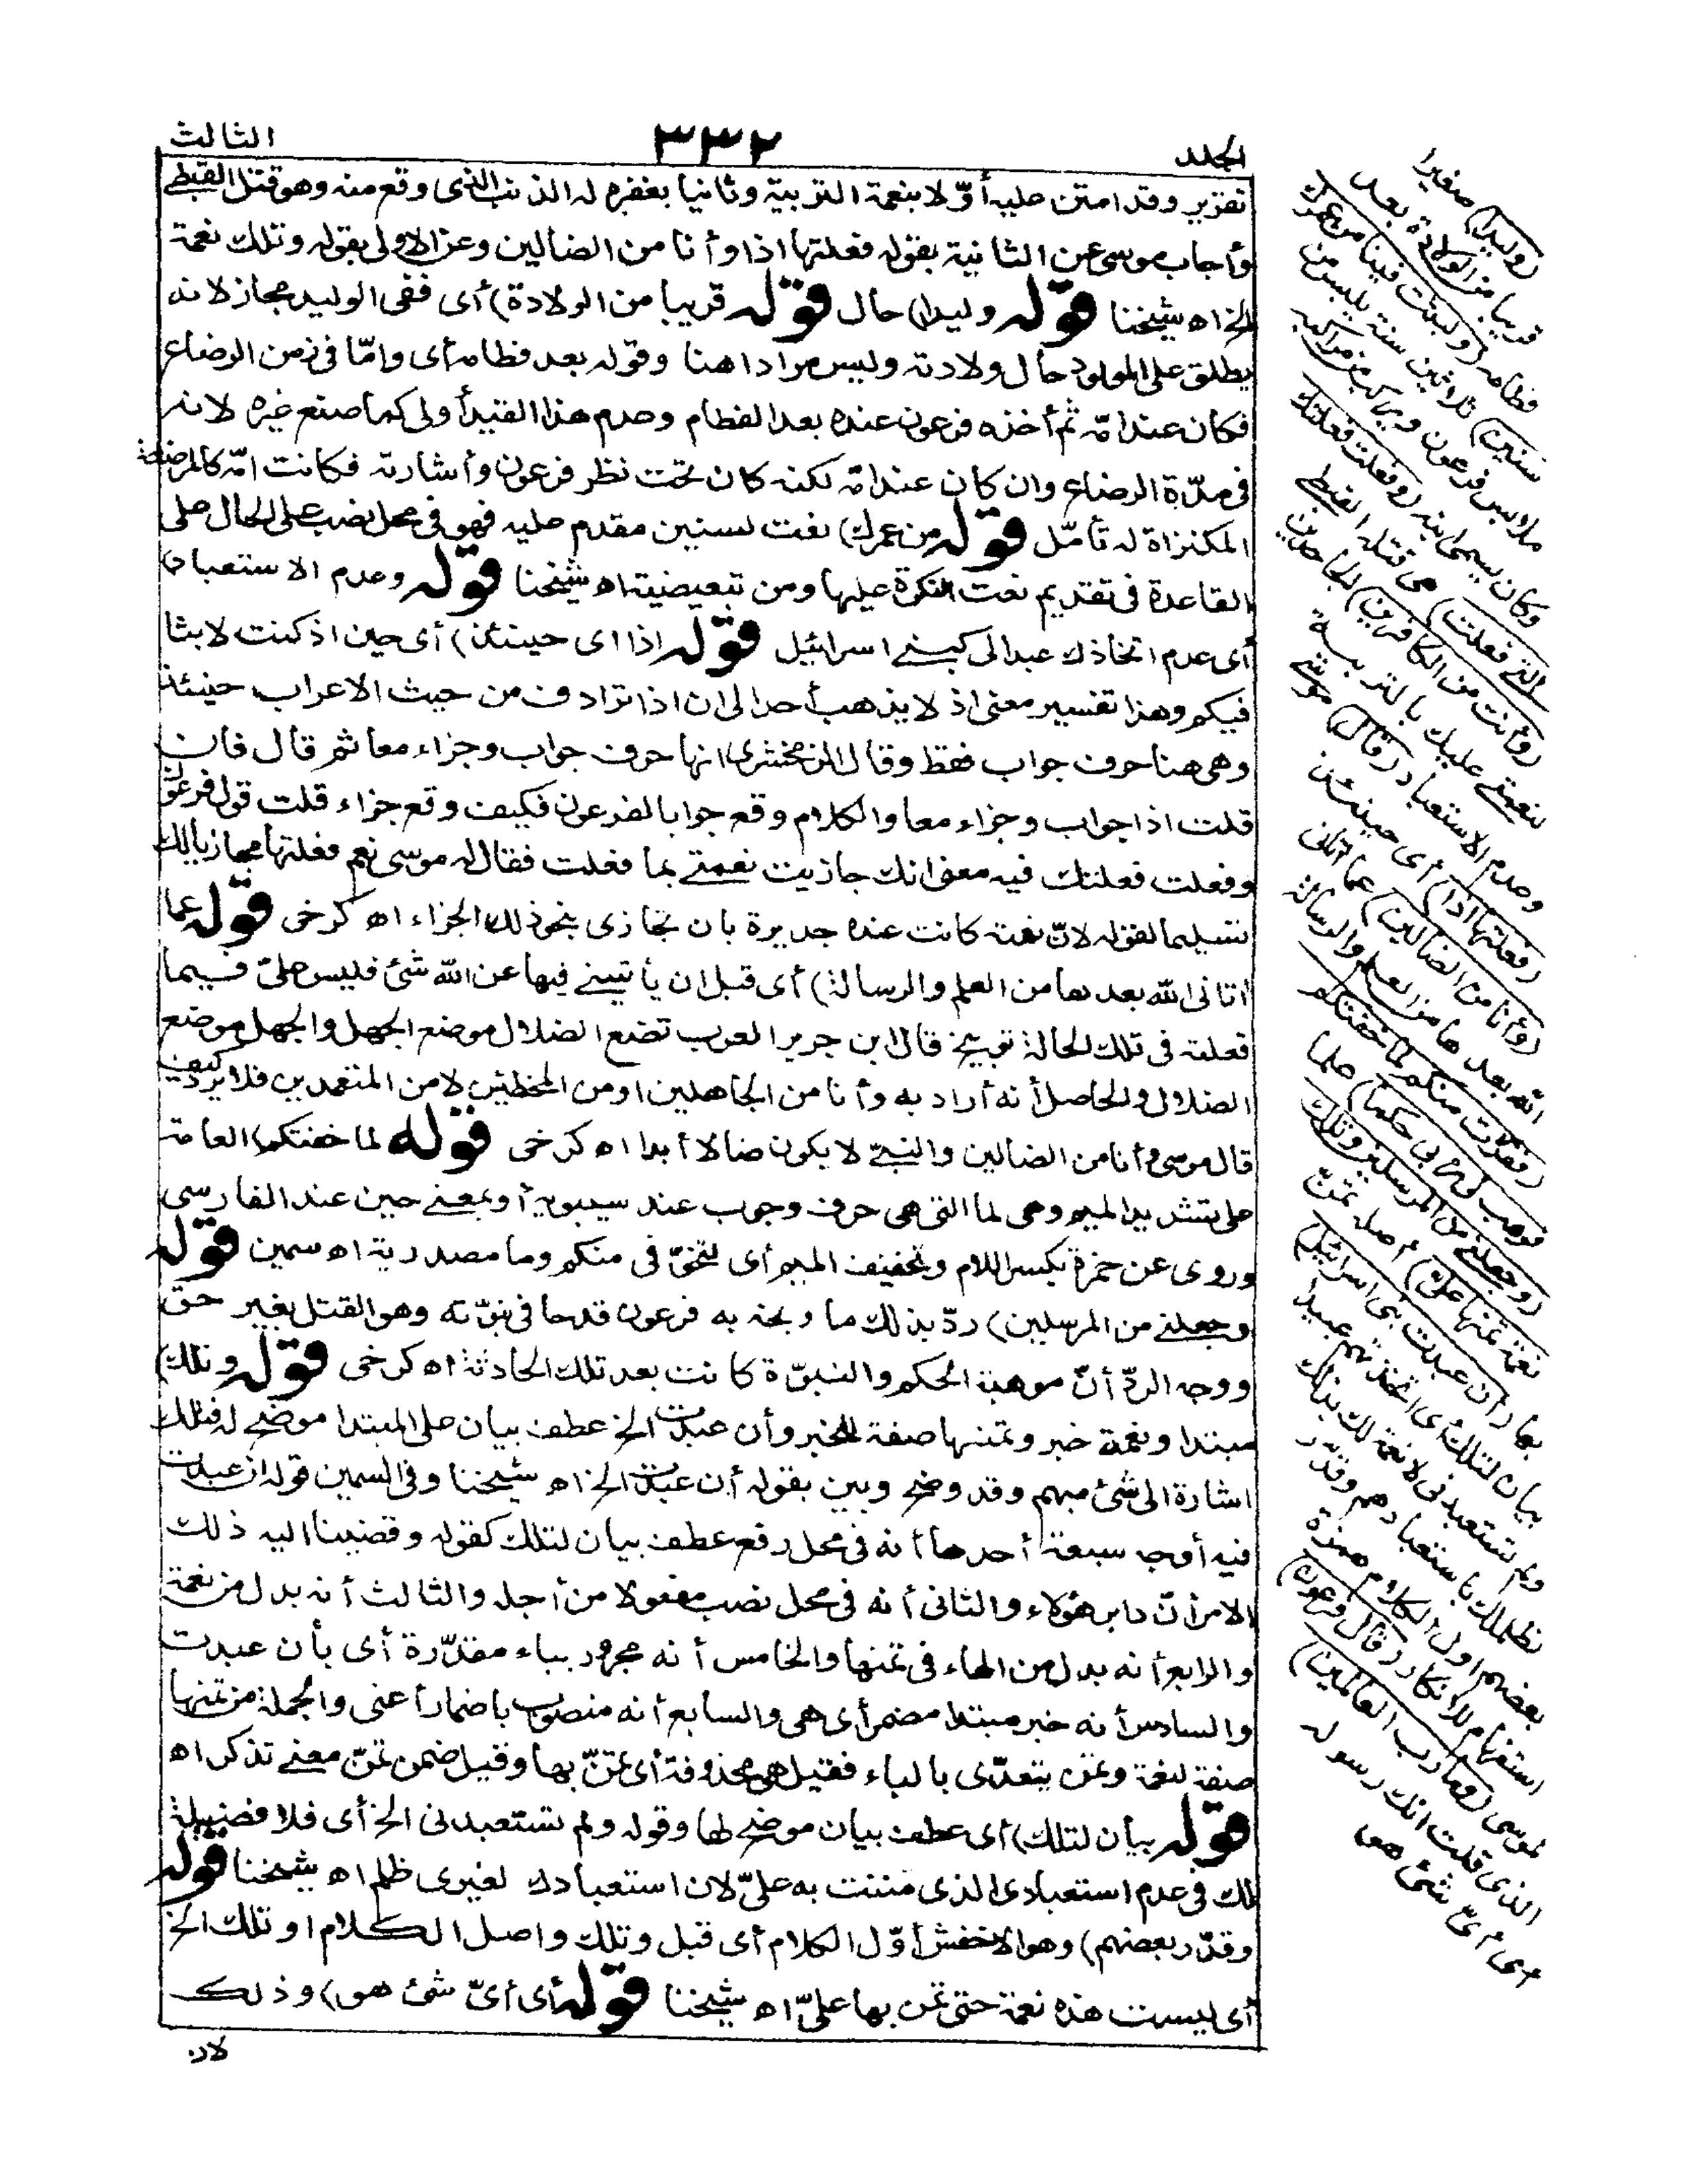 الجلد ٣٣٢ الثالث
تقرير وقد امتن عليه أوّلا بنعمة التربية وثانيا بغفره له الذنب الذى وقع منه وهو قتل القبطى
وأجاب موسى عن الثانية بقوله فعلتها اذا وأنا من الضالين وعن الاولى بقوله وتلك نعمة
الخ اه شيخنا قوله وليدا) حال قوله قريبا من الولادة) أى ففى الوليد مجاز لانه
يطلق على المولود حال ولادته وليس مرادا هنا وقوله بعد فطامه أى وامّا فى زمن الرضاع
فكان عند امّه ثم أخذه فرعون عنده بعد الفطام وعدم هذا القيد أولى كما صنع غيره لانه
فى مدّة الرضاع وان كان عند امّه لكنه كان تحت نظر فرعون وأشارته فكانت امّه كالمرضعة
المكتراة له تأمّل قوله من عمرك) نعت لسنين مقدم عليه فهو فى محل نصب على الحال على
القاعدة فى تقديم نعت النكرة عليها ومن تبعيضية اه شيخنا قوله وعدم الاستعباد)
أى عدم اتخاذك عبدا لى كبنى اسرائيل قوله اذا اى حينئذ) أى حين اذ كنت لابثا
فيكم وهذا تفسير معنى اذ لا يذهب أحد الى ان اذا ترادف من حيث الاعراب حينئذ
وهى هنا حرف جواب فقط وقال الزمخشرى انها حرف جواب وجزاء معا ثم قال فان
قلت اذا جواب وجزاء معا والكلام وقع جوابا لفرعون فكيف وقع جزاء قلت قول فرعون
وفعلت فعلتك فيه معنى انك جازيت نعمتى بما فعلت فقال له موسى نعم فعلتها مجازيا لك
تسليما لقوله لانّ نعمته كانت عنده جديرة بان تجازى بنحو ذلك الجزاء اه كرخى قوله عما
اتانى الله بعدها من العلم والرسالة) أى قبل ان يأتينى فيها عن الله شئ فليس علىّ فيما
فعلته فى تلك الحالة توبيخ قال ابن جرير العرب تضع الضلال موضع الجهل والجهل موضع
الضلال والحاصل أنه أراد به وأنا من الجاهلين او من المخطئين لا من المتعمدين فلا يرد كيف
قال موسى وأنا من الضالين والنبىّ لا يكون ضالا أبدا اه كرخى قوله لما خفتكم) العامة
على تشديد الميم وهى لما التى هى حرف وجوب عند سيبويه أو بمعنى حين عند الفارسى
وروى عن حمزة بكسر اللام وتخفيف الميم أى لتخوّفى منكم وما مصدرية اه سمين قوله
وجعلنى من المرسلين) ردّ بذلك ما وبخه به فرعون قدحا فى نبوّته وهو القتل بغير حق
ووجه الردّ أنّ موهبة الحكم والنبوّة كانت بعد تلك الحادثة اه كرخى قوله وتلك)
مبتدا ونعمة خبر وتمنها صفة للخبر وأن عبدت الخ عطف بيان على المبتدا موضح له فتلك
اشارة الى شئ مبهم وقد وضح وبين بقوله أن عبدت الخ اه شيخنا وفى السمين قوله ان عبدت
فيه أوجه سبعة أحدها أنه فى محل رفع عطف بيان لتلك كقوله وقضينا اليه ذلك
الامر أنّ دابر هؤلاء والثانى أنه فى محل نصب مفعولا من أجله والثالث أنه بدل من نعمة
والرابع أنه بدل من الهاء فى تمنها والخامس أنه مجرور بباء مقدّرة أى بأن عبدت
والسادس أنه خبر مبتدا مضمر أى هى والسابع أنه منصوب باضمار أعنى والجملة من تمنها
صفة لنعمة وتمن يتعدّى بالباء فقيل هى محذوفة أى تمنّ بها وقيل ضمن تمنّ معنى تذكر اه
قوله بيان لتلك) أى عطف بيان موضح لها وقوله ولم تستعبدنى الخ أى فلا فضيلة
لك فى عدم استعبادى الذى مننت به علىّ لان استعبادك لغيرى ظلم اه شيخنا قوله
وقدّر بعضهم) وهو الاخفش أوّل الكلام أى قبل وتلك واصل الكلام او تلك الخ
أى ليست هذه نعمة حتى تمن بها علىّ اه شيخنا قوله أى أىّ شئ هو) وذلك
لان
(وليدا) صغيرا
قريبا من الولادة بعد
فطامه (ولبثت فينا من عمرك
سنين) ثلاثين سنة يلبس من
ملابس فرعون ويركب من مراكبه
وكان يسمى ابنه (وفعلت فعلتك
التى فعلت) هى قتله القبطى
(وأنت من الكافرين) الجاحدين
لنعمتى عليك بالتربية
وعدم الاستعباد (قال) موسى
(فعلتها اذا) أى حينئذ
(وأنا من الضالين) عما اتانى
الله بعدها من العلم والرسالة
(ففررت منكم لما خفتكم
فوهب لى ربى حكما) علما
(وجعلنى من المرسلين وتلك
نعمة تمنها علىّ) أصله تمنّ
بها (أن عبدت بنى اسرائيل)
بيان لتلك أى اتخذتهم عبيدا
ولم تستعبدنى لا نعمة لك بذلك
لظلمك باستعبادهم وقدّر
بعضهم اول الكلام همزة
استفهام للانكار (قال فرعون)
لموسى (وما رب العالمين)
الذى قلت انك رسوله
اى أىّ شئ هو